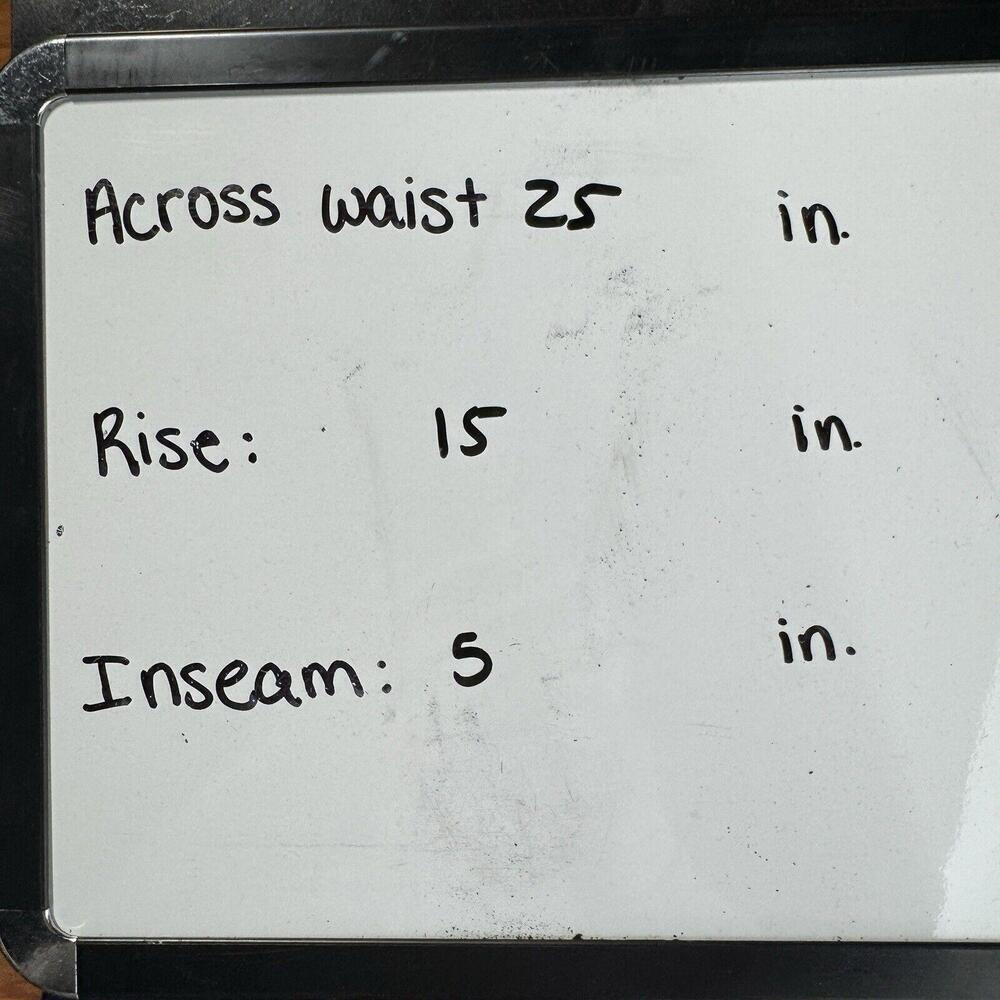 Across waist 25 in.
Rise: 15 in.
Inseam: 5 in.